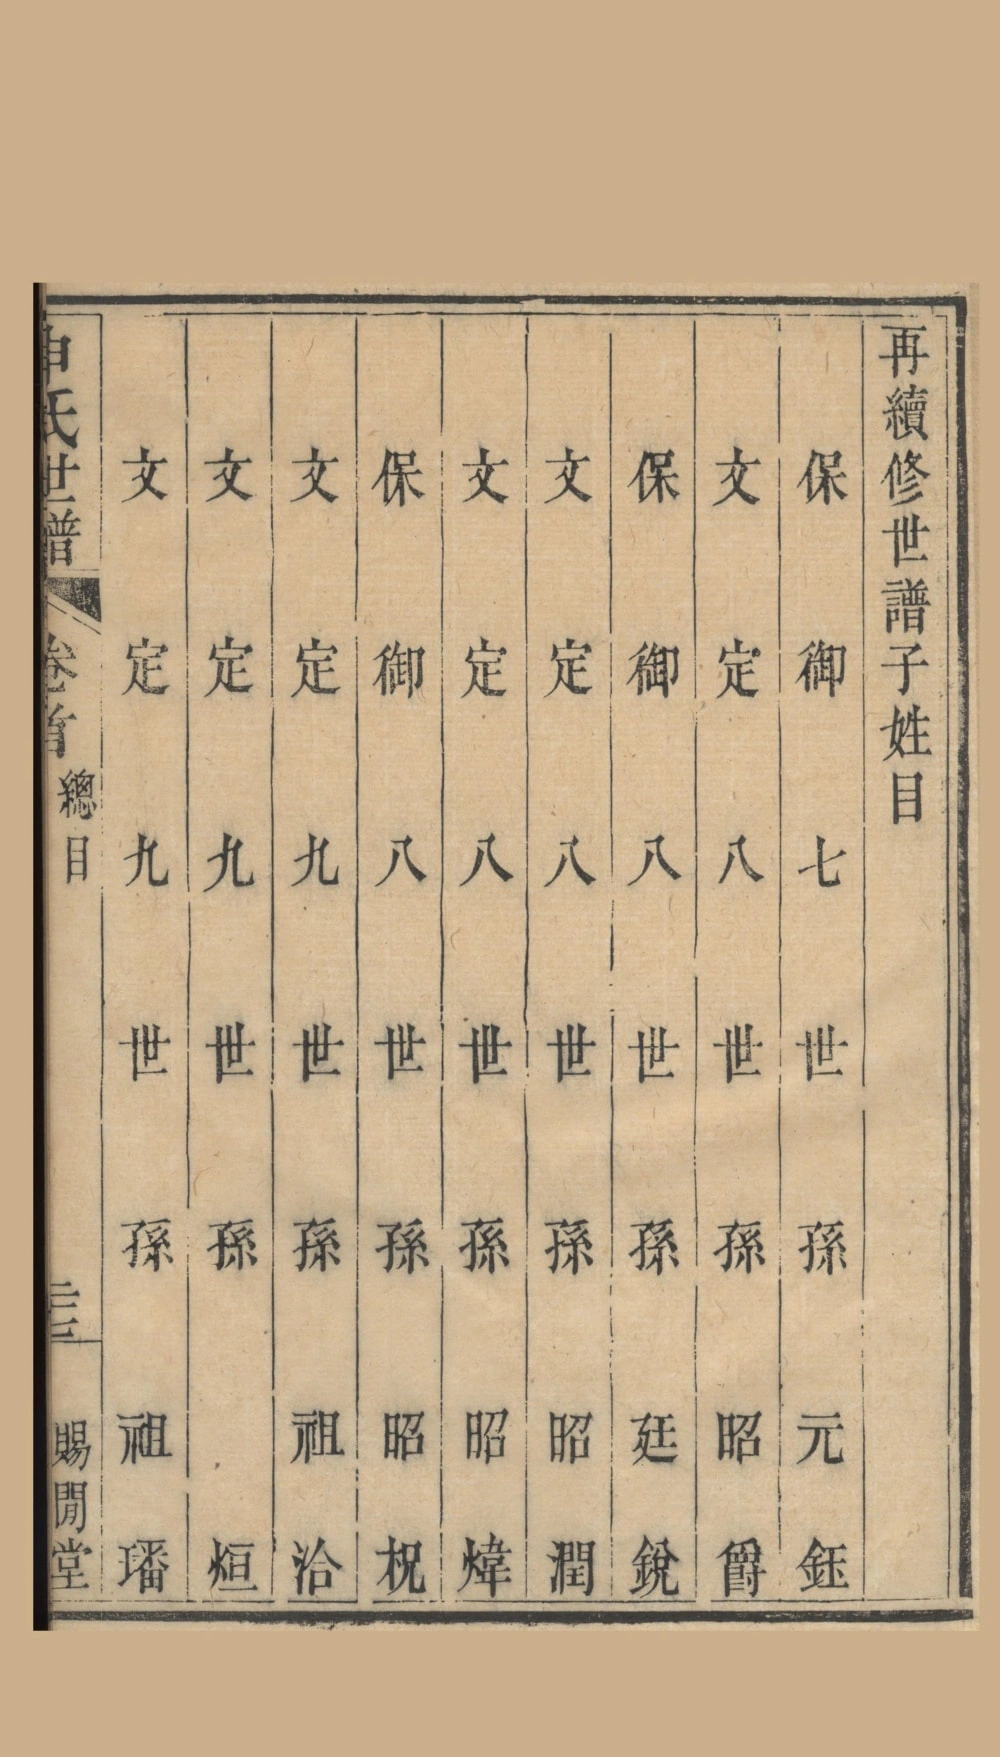 再續修世譜子姓目
保御七世孫元鈺
文定八世孫昭爵
保御八世孫廷銳
文定八世孫昭潤
文定八世孫昭煒
保御八世孫昭柷
文定九世孫祖洽
文定九世孫烜
文定九世孫祖璠
申氏世譜
卷首
總目
賜閒堂